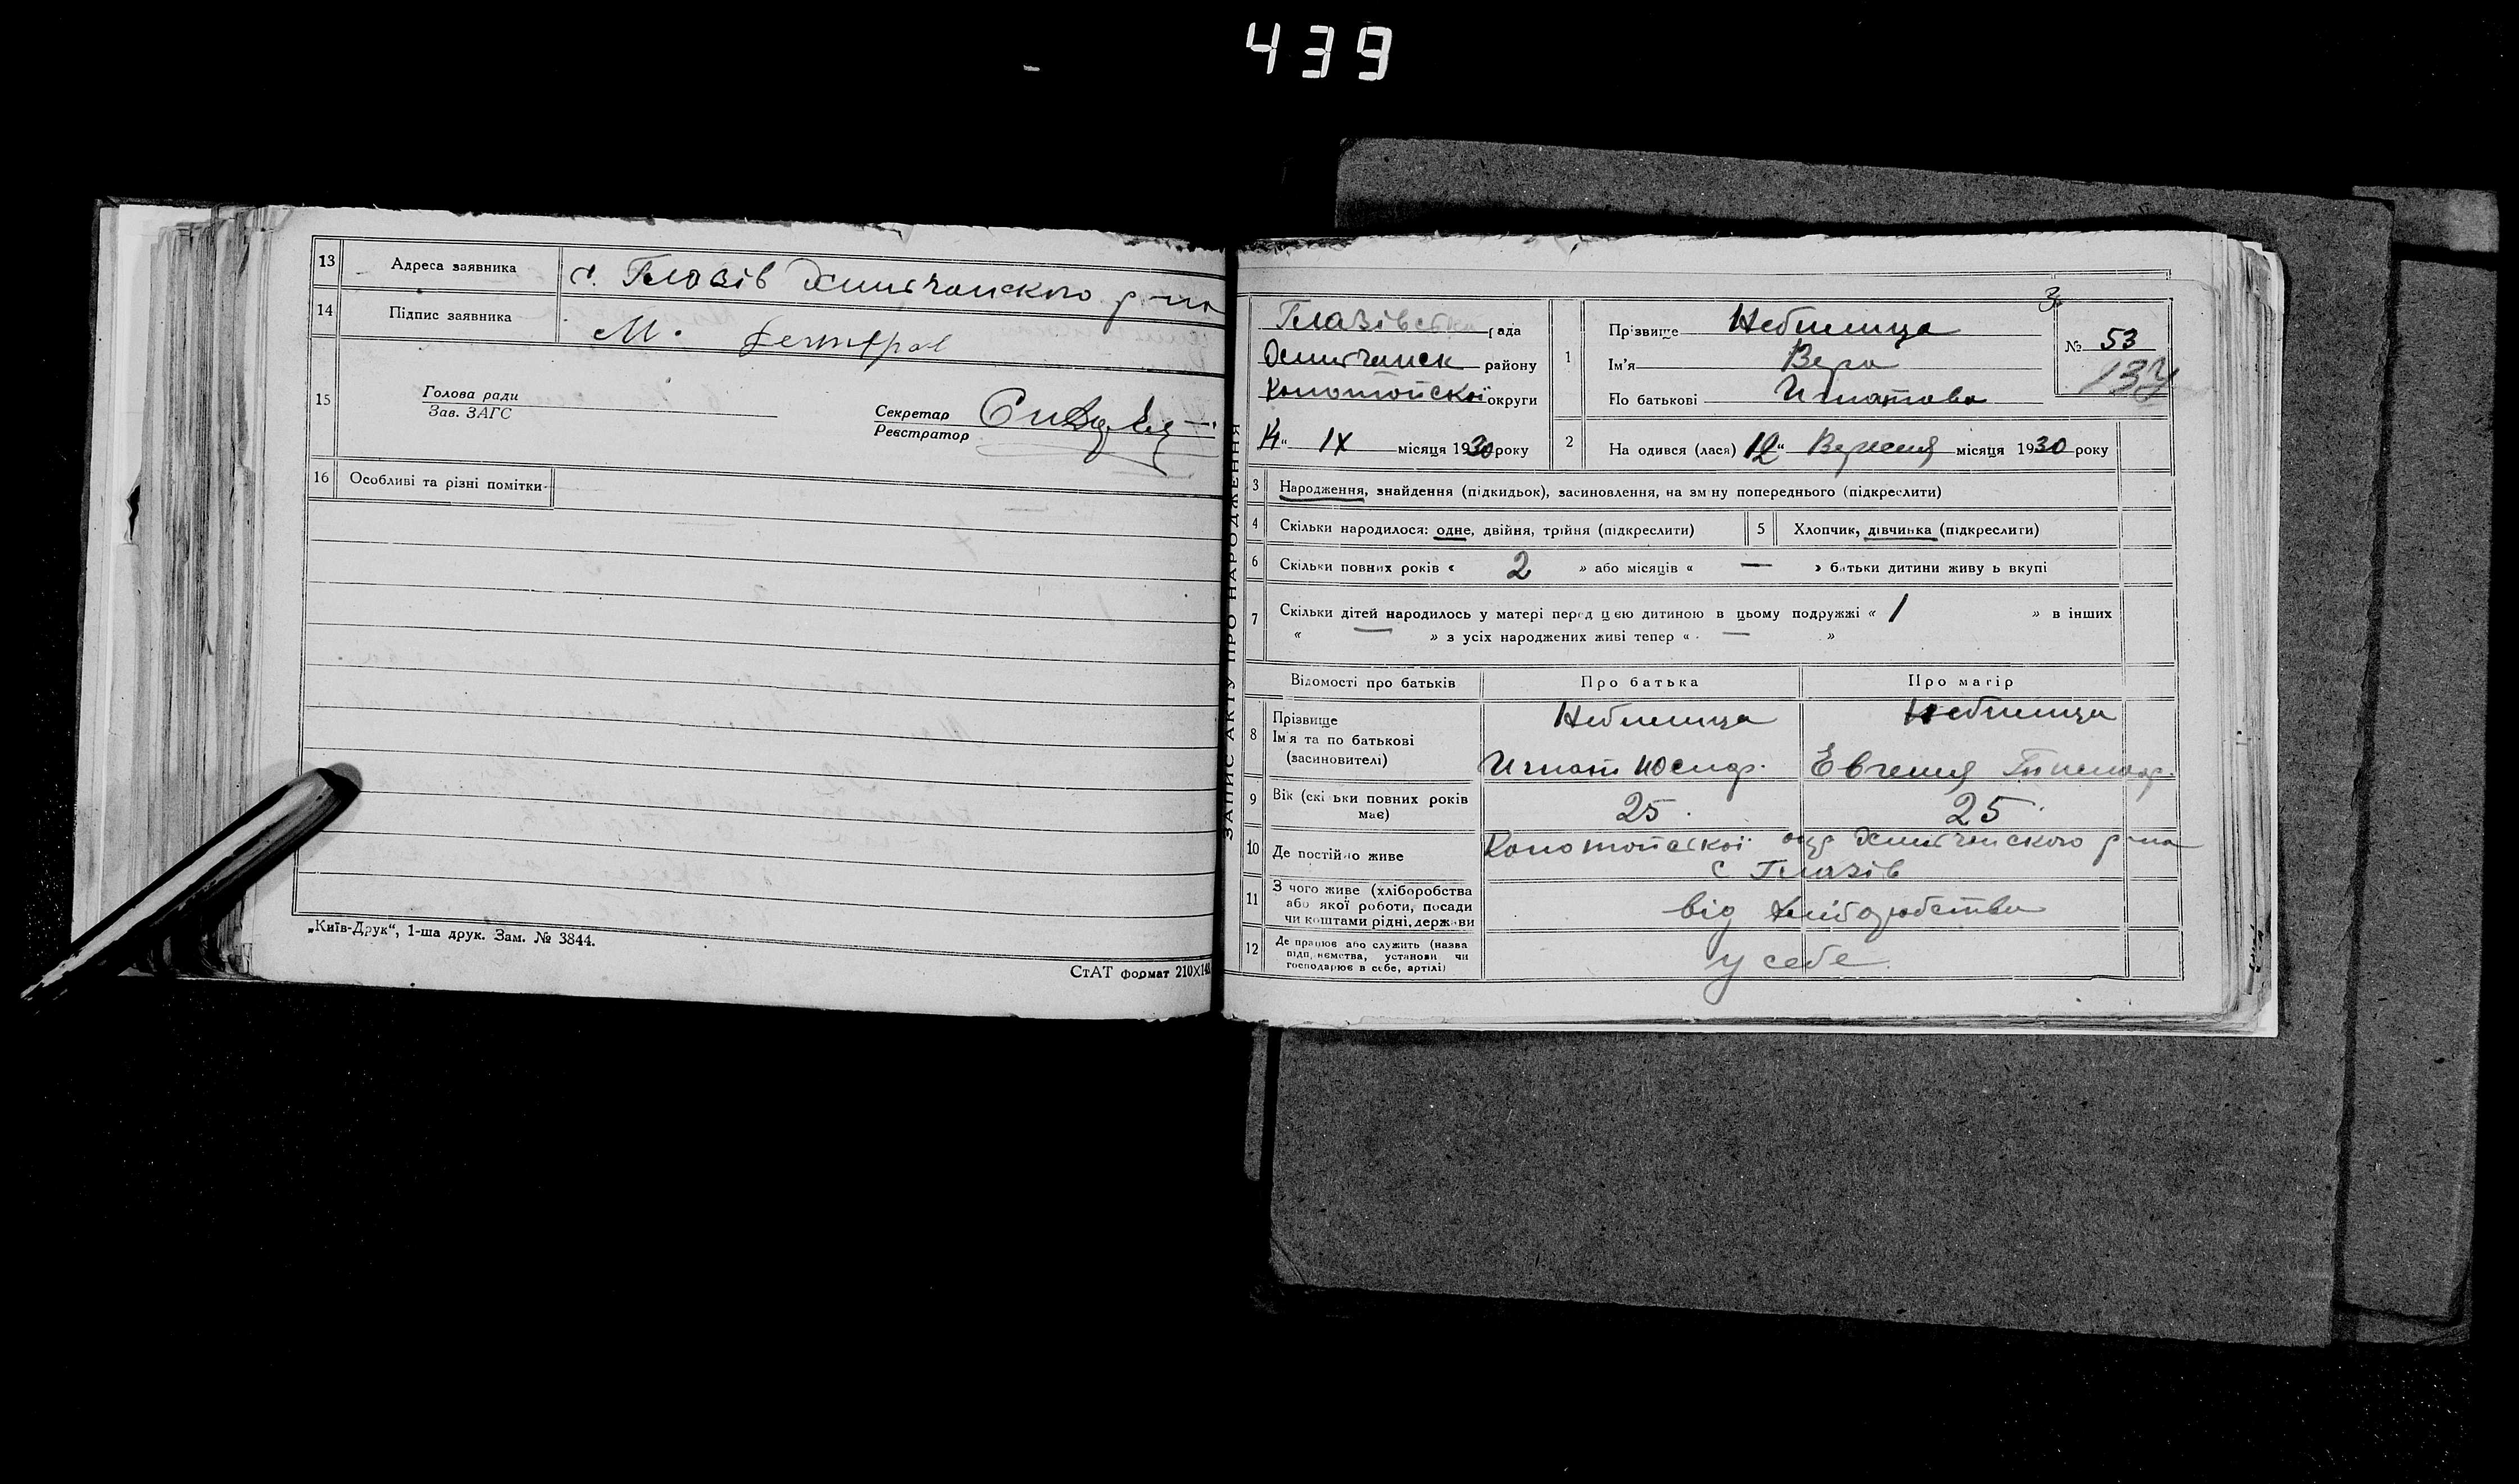 439
13 Адреса заявника с. Глазів Эсманчанського р-на
14 Підпис заявника М.
15 Голова ради
Зав. ЗАГС
Секретар
Реєстратор
16 Особливі та різні помітки
„Київ-Друк“, 1-ша друк. Зам. № 3844.
СтАТ формат 210×148
ЗАПИС АКТУ ПРО НАРОДЖЕННЯ
Глазівська рада
району
Конотопскої округи
14 „ IX місяця 1930 року
3
№ 53
137
1 Прізвище Небилица
Ім'я Вера
По батькові Игнатова
2 Народився (лася) 12 „ Вересня місяця 1930 року
3 Народження, знайдення (підкидьок), засиновлення, на зміну попереднього (підкреслити)
4 Скільки народилося: одне, двійня, трійня (підкреслити) 5 Хлопчик, дівчинка (підкреслити)
6 Скільки повних років « 2 » або місяців « — » батьки дитини живуть вкупі
7 Скільки дітей народилось у матері перед цією дитиною в цьому подружжі « 1 » в інших
« — » з усіх народжених живі тепер « — »
Відомості про батьків Про батька Про матір
8 Прізвище Небилица Небилица
Ім'я та по батькові
(засиновителі) Игнат Юсиф. Евгения
9 Вік (скільки повних років має) 25. 25.
10 Де постійно живе Конотопскої окр р-на
с Глазів
11 З чого живе (хліборобства
або якої роботи, посади
чи коштами рідні, держави від хліборобства
12 Де працює або служить (назва
підприємства, установи чи
господарює в себе, артілі) у себе.